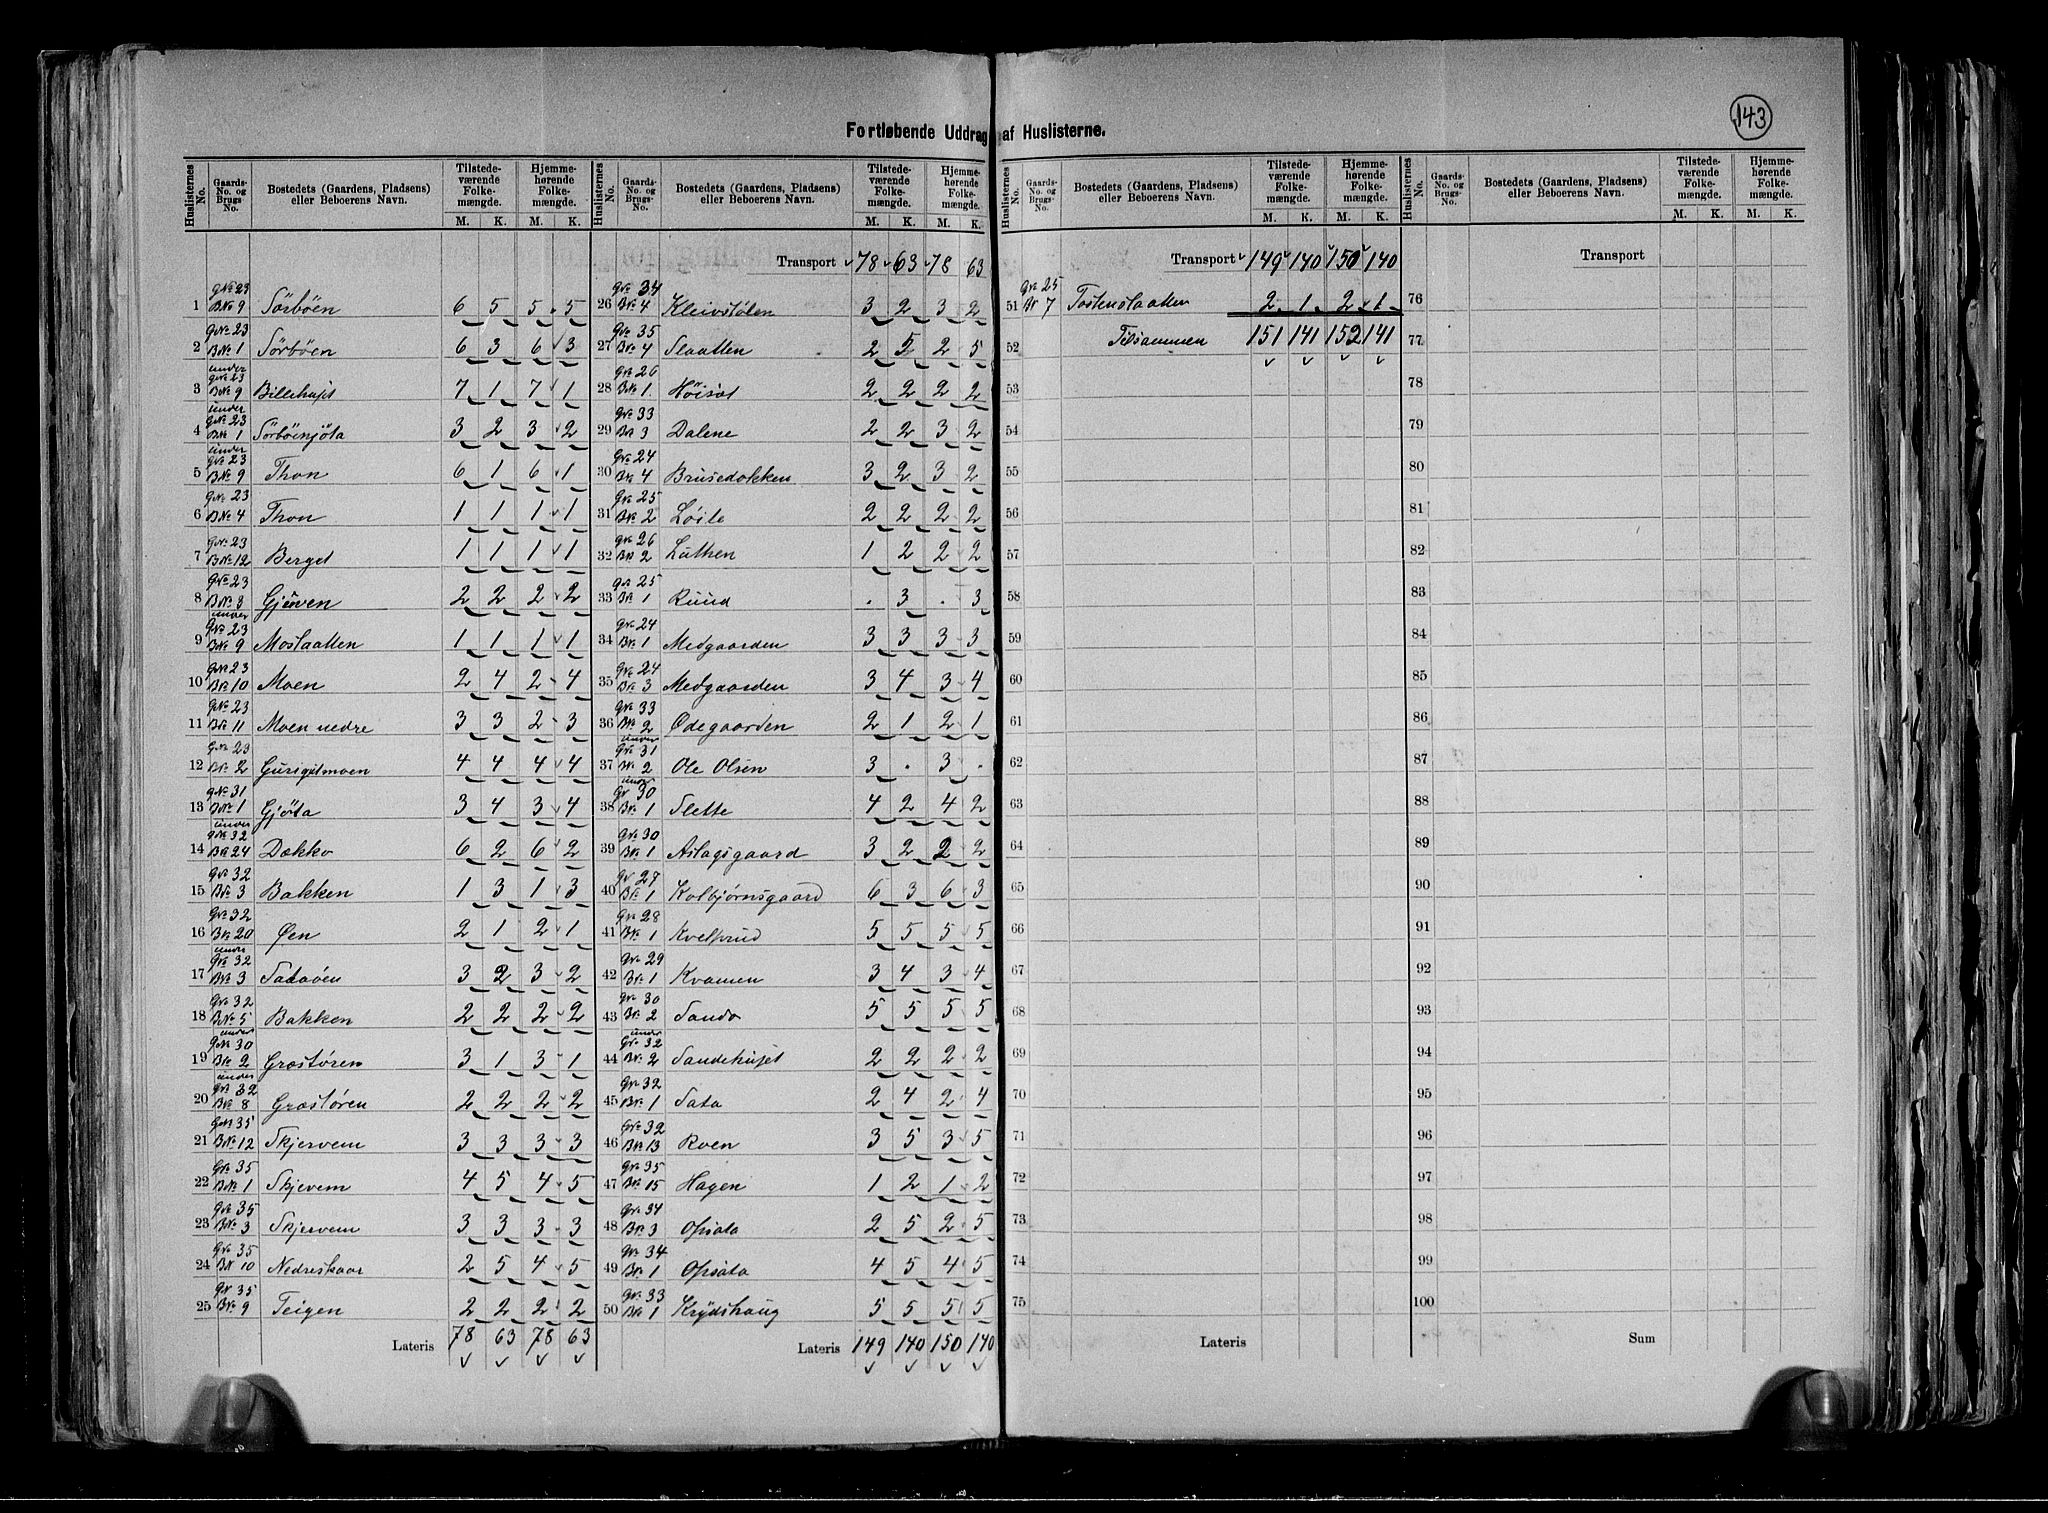 143
Fortløbende Uddrag af Huslisterne.
Huslisternes No. | Gaards-No. og Brugs-No. | Bostedets (Gaardens, Pladsens) eller Beboerens Navn. | Tilstedeværende Folkemængde. M. K. | Hjemmehørende Folkemængde. M. K.
1 GNo 23 BNo 9 Sørbøen 6 5 5 5
2 GNo 23 BNo 1 Sørbøen 6 3 6 3
3 under GNo 23 BNo 9 Billehuset 7 1 7 1
4 under GNo 23 BNo 1 Sørbøenjöta 3 2 3 2
5 under GNo 23 BNo 9 Thon 6 1 6 1
6 GNo 23 BNo 4 Thon 1 1 1 1
7 GNo 23 BNo 12 Berget 1 1 1 1
8 GNo 23 BNo 3 Gjuven 2 2 2 2
9 under GNo 23 BNo 9 Moslaatten 1 1 1 1
10 GNo 23 BNo 10 Moen 2 4 2 4
11 GNo 23 BNo 11 Moen nedre 3 3 2 3
12 GNo 23 BNo 2 Gursgutmoen 4 4 4 4
13 GNo 31 BNo 1 Gjöta 3 4 3 4
14 under GNo 32 BNo 24 Dokko 6 2 6 2
15 GNo 32 BNo 3 Bakken 1 3 1 3
16 GNo 32 BNo 20 Øen 2 1 2 1
17 under GNo 32 BNo 3 Sataöen 3 2 3 2
18 GNo 32 BNo 5 Bakken 2 2 2 2
19 under GNo 30 BNo 2 Grostøren 3 1 3 1
20 under GNo 32 BNo 8 Grostøren 2 2 2 2
21 GNo 35 BNo 12 Skjervem 3 3 3 3
22 GNo 35 BNo 1 Skjevem 4 5 4 5
23 GNo 35 BNo 3 Skjervem 3 3 3 3
24 GNo 35 BNo 10 Nedreskaar 2 5 4 5
25 GNo 35 BNo 9 Teigen 2 2 2 2
Lateris 78 63 78 63
Huslisternes No. | Gaards-No. og Brugs-No. | Bostedets (Gaardens, Pladsens) eller Beboerens Navn. | Tilstedeværende Folkemængde. M. K. | Hjemmehørende Folkemængde. M. K.
Transport 78 63 78 63
26 GNo 34 BNo 4 Kleivstølen 3 2 3 2
27 GNo 35 BNo 4 Slaatten 2 5 2 5
28 GNo 26 BNo 1 Høisæt 2 2 2 2
29 GNo 33 BNo 3 Dalene 2 2 3 2
30 GNo 24 BNo 4 Brusedokken 3 2 3 2
31 GNo 25 BNo 2 Løite 2 2 2 2
32 GNo 26 BNo 2 Luthen 1 2 2 2
33 GNo 25 BNo 1 Ruud . 3 . 3
34 GNo 24 BNo 1 Medgaarden 3 3 3 3
35 GNo 24 BNo 3 Medgaarden 3 4 3 4
36 GNo 33 BNo 2 Ødegaarden 2 1 2 1
37 under GNo 31 BNo 2 Ole Olsen 3 . 3 .
38 under GNo 30 BNo 1 Slette 4 2 4 2
39 GNo 30 BNo 1 Aslagsgaard 3 2 2 2
40 GNo 27 BNo 1 Kolbjørnsgaard 6 3 6 3
41 GNo 28 BNo 1 Kvelprud 5 5 5 5
42 GNo 29 BNo 1 Kvamen 3 4 3 4
43 GNo 30 BNo 2 Sando 5 5 5 5
44 under GNo 32 BNo 2 Sandehuset 2 2 2 2
45 GNo 32 BNo 1 Sata 2 4 2 4
46 GNo 32 BNo 13 Roen 3 5 3 5
47 GNo 35 BNo 15 Hagen 1 2 1 2
48 GNo 34 BNo 3 Opsata 2 5 2 5
49 GNo 34 BNo 1 Opsata 4 5 4 5
50 GNo 33 BNo 1 Krydshaug 5 5 5 5
Lateris 149 140 150 140
Huslisternes No. | Gaards-No. og Brugs-No. | Bostedets (Gaardens, Pladsens) eller Beboerens Navn. | Tilstedeværende Folkemængde. M. K. | Hjemmehørende Folkemængde. M. K.
Transport 149 140 150 140
51 GNo 25 Br 7 Tostenslaatten 2 1 2 1
52 Tilsammen 151 141 152 141
53
54
55
56
57
58
59
60
61
62
63
64
65
66
67
68
69
70
71
72
73
74
75
Lateris
Huslisternes No. | Gaards-No. og Brugs-No. | Bostedets (Gaardens, Pladsens) eller Beboerens Navn. | Tilstedeværende Folkemængde. M. K. | Hjemmehørende Folkemængde. M. K.
Transport
76
77
78
79
80
81
82
83
84
85
86
87
88
89
90
91
92
93
94
95
96
97
98
99
100
Sum